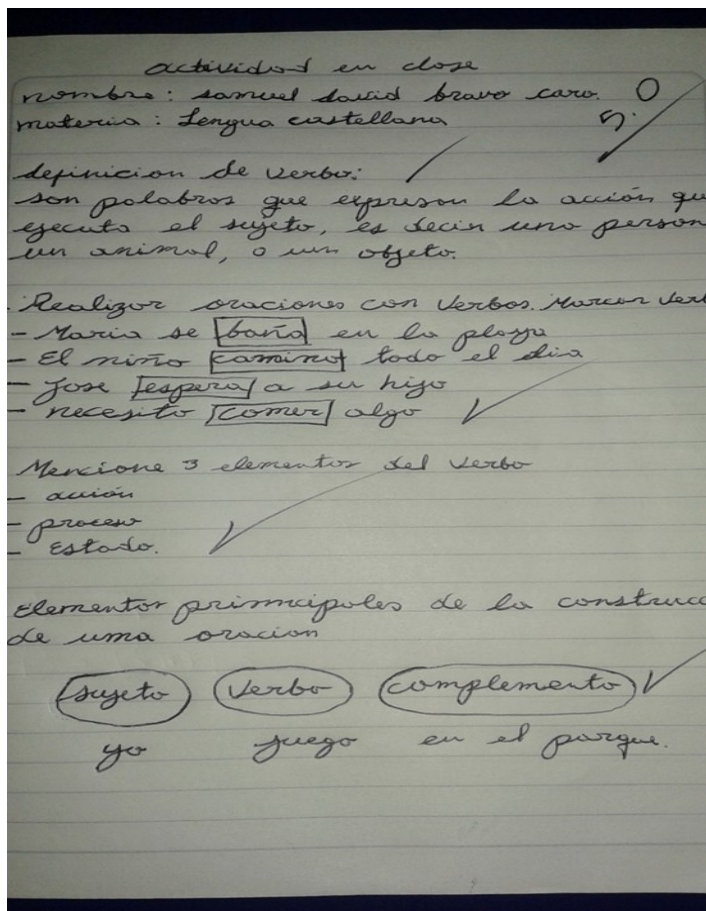 actividad en clase
nombre: samuel david bravo caro. 5.0
materia: Lengua castellana
definicion de verbo:
son palabras que expresan la acción qu
ejecuta el sujeto, es decir una person
un animal, o un objeto.
. Realizar oraciones con verbos. Marcar verb
- Maria se baña en la playa
- El niño camino todo el dia
- Jose espera a su hijo
- necesito comer algo
Mencione 3 elementos del verbo
- acción
- proceso
- Estado.
Elementos primncipales de la construcc
de una oracion
sujeto verbo complemento
yo juego en el parque.